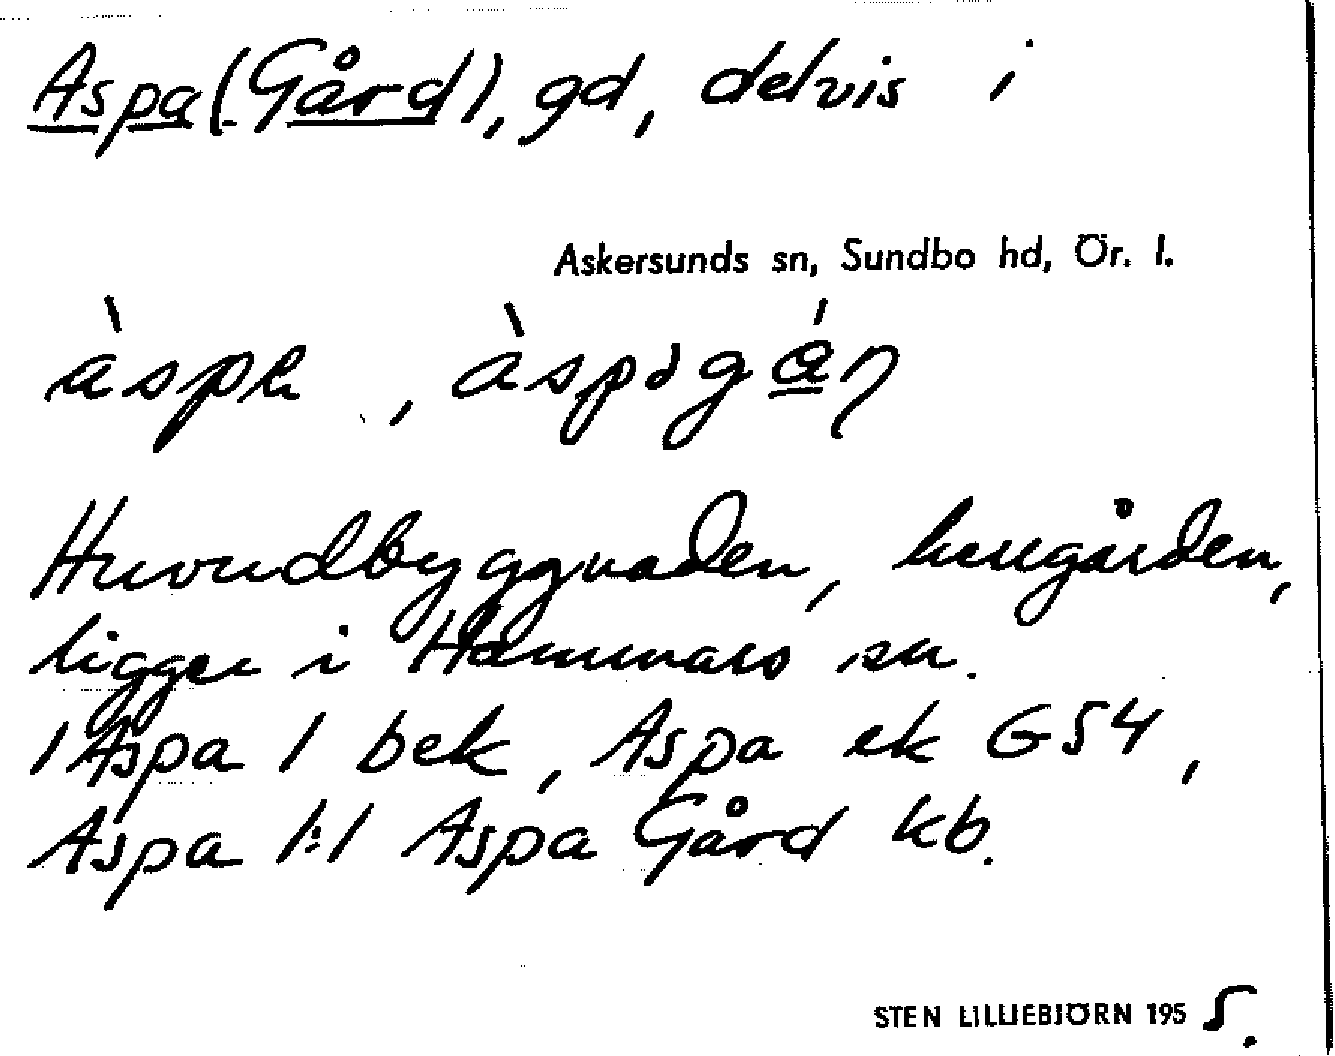 Aspa (Gård), gd, delvis i
Askersunds sn, Sundbo hd, Ör. l.
Huvudbyggnaden, herrgården,
ligger i Hammars sn.
1 Aspa 1 bek, Aspa ek G54,
Aspa 1:1 Aspa Gård kb.
STEN LILLIEBJÖRN 195 5.